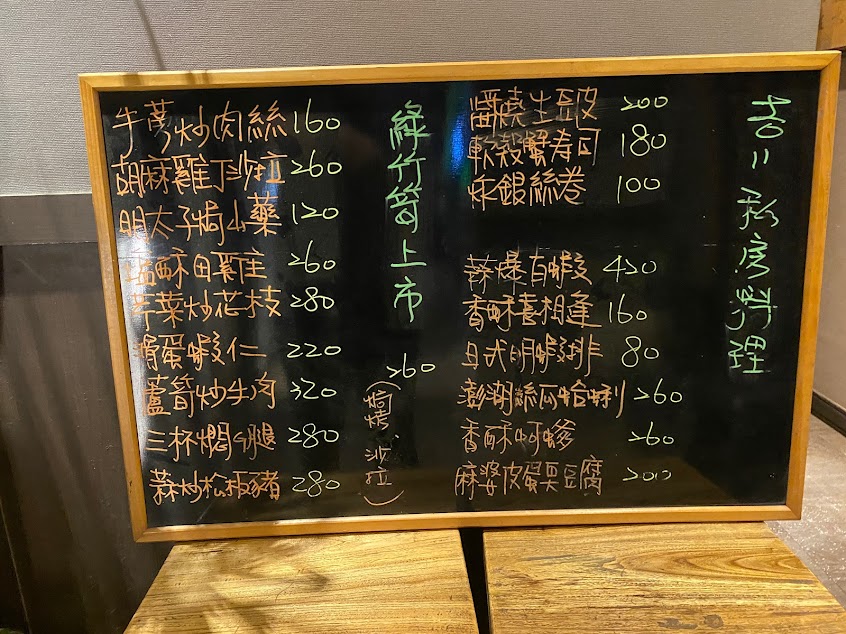 吉二私房料理
醬燒生豆皮 200
軟殼蟹寿司 180
炸銀絲卷 100
蒜爆有蝦 420
香酥喜相逢 160
日式明蝦排 80
澎湖絲瓜蛤蜊 260
香酥蚵嗲 260
麻婆皮蛋臭豆腐 200
綠竹筍上市 260
(焗烤、沙拉)
牛蒡炒肉絲 160
胡麻雞丁沙拉 260
明太子焗山藥 120
鹽酥田雞 260
芹菜炒花枝 280
滑蛋蝦仁 220
蘆筍炒牛肉 320
三杯燜腿 280
蒜炒松板豬 280